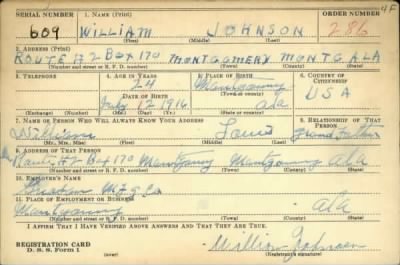 4F
SERIAL NUMBER 1. NAME (Print) ORDER NUMBER
609 WILLIAM JOHNSON 286
(First) (Middle) (Last)
2. ADDRESS (Print)
ROUTE #2 BOX 170 MONTGOMERY MONTG ALA
(Number and street or R. F. D. number) (Town) (County) (State)
3. TELEPHONE 4. AGE IN YEARS 5. PLACE OF BIRTH 6. COUNTRY OF CITIZENSHIP
24 Montgomery USA
DATE OF BIRTH (Town or county)
July 12 1916 ala
(Exchange) (Number) (Mo.) (Day) (Yr.) (State or country)
7. NAME OF PERSON WHO WILL ALWAYS KNOW YOUR ADDRESS 8. RELATIONSHIP OF THAT PERSON
Louis Grand father
(Mr., Mrs., Miss) (First) (Middle) (Last)
9. ADDRESS OF THAT PERSON
Route #2 Box 170 Montgomery Montgomery Ala
(Number and street or R. F. D. number) (Town) (County) (State)
10. EMPLOYER'S NAME
Mfg Co
11. PLACE OF EMPLOYMENT OR BUSINESS
Montgomery ala
(Number and street or R. F. D. number) (Town) (County) (State)
I AFFIRM THAT I HAVE VERIFIED ABOVE ANSWERS AND THAT THEY ARE TRUE.
REGISTRATION CARD William Johnson
D. S. S. Form 1 (over) (Registrant's signature)